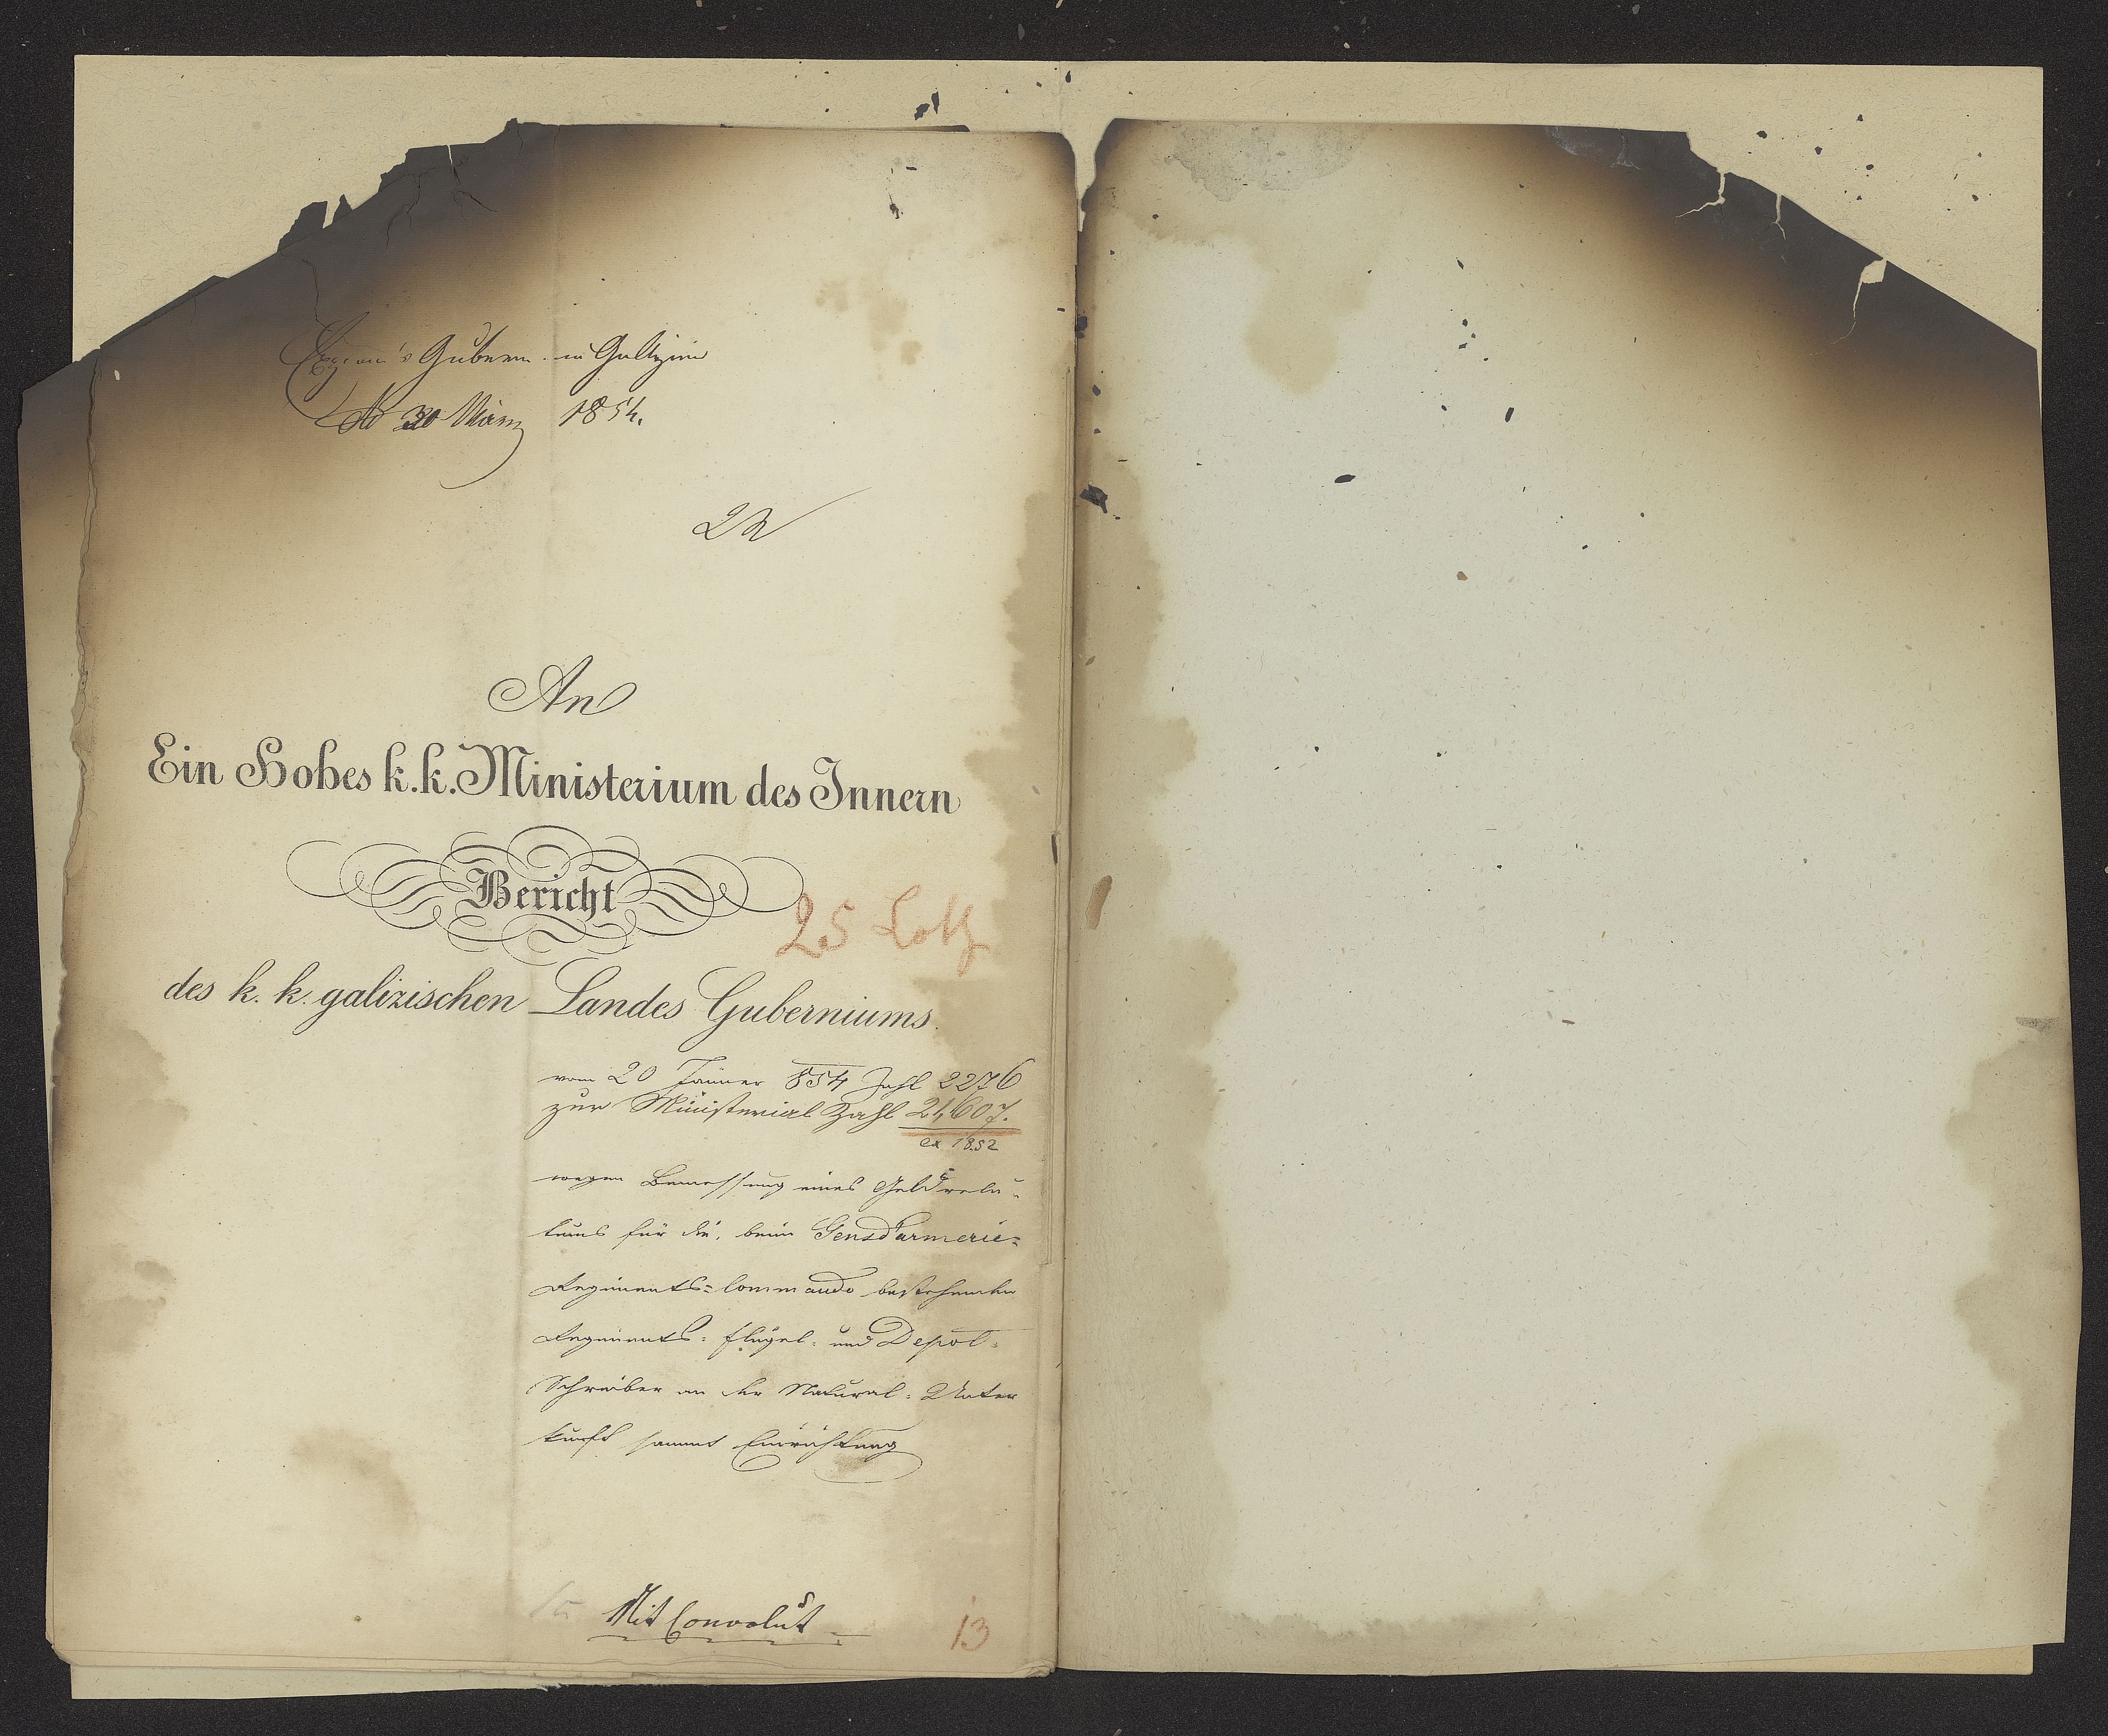 Gubern. in Galizien
30 März 1854.
An
Ein Hohes k.k. Ministerium des Innern
Bericht
25 Loth
des k. k. galizischen Landes Guberniums.
vom 20 Jänner 854 Zahl 2276
zur Ministerial Zahl 21,607.
ex 1852
wegen Bemessung eines Geldrelu-
tums für die, beim Gensdarmerie=
Regiments=Commando bestehenden
Regiments= Flügel= und Depot=
Schreiber an der Natural= Unter
kunft sammt Einrichtung
Mit Convolut
13